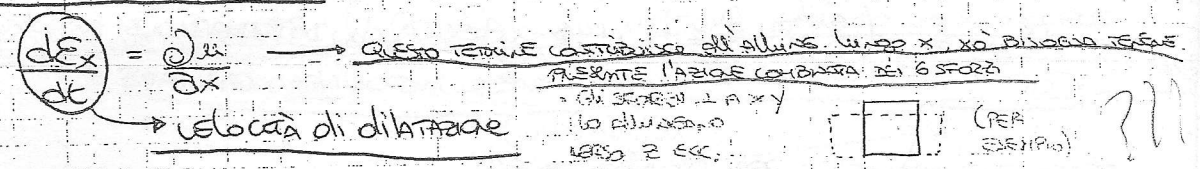 dεx/dt = ∂u/∂x → QUESTO TERMINE CONTRIBUISCE All'Allung. lungo x, xò BISOGNA TENERE
PRESENTE l'AZIONE COMBINATA DEI 6 SFORZI
→ velocità di dilatazione
• Gli SFORZI ⊥ A x y
lo allungano
verso z ecc.
(PER
ESEMPIO)
???